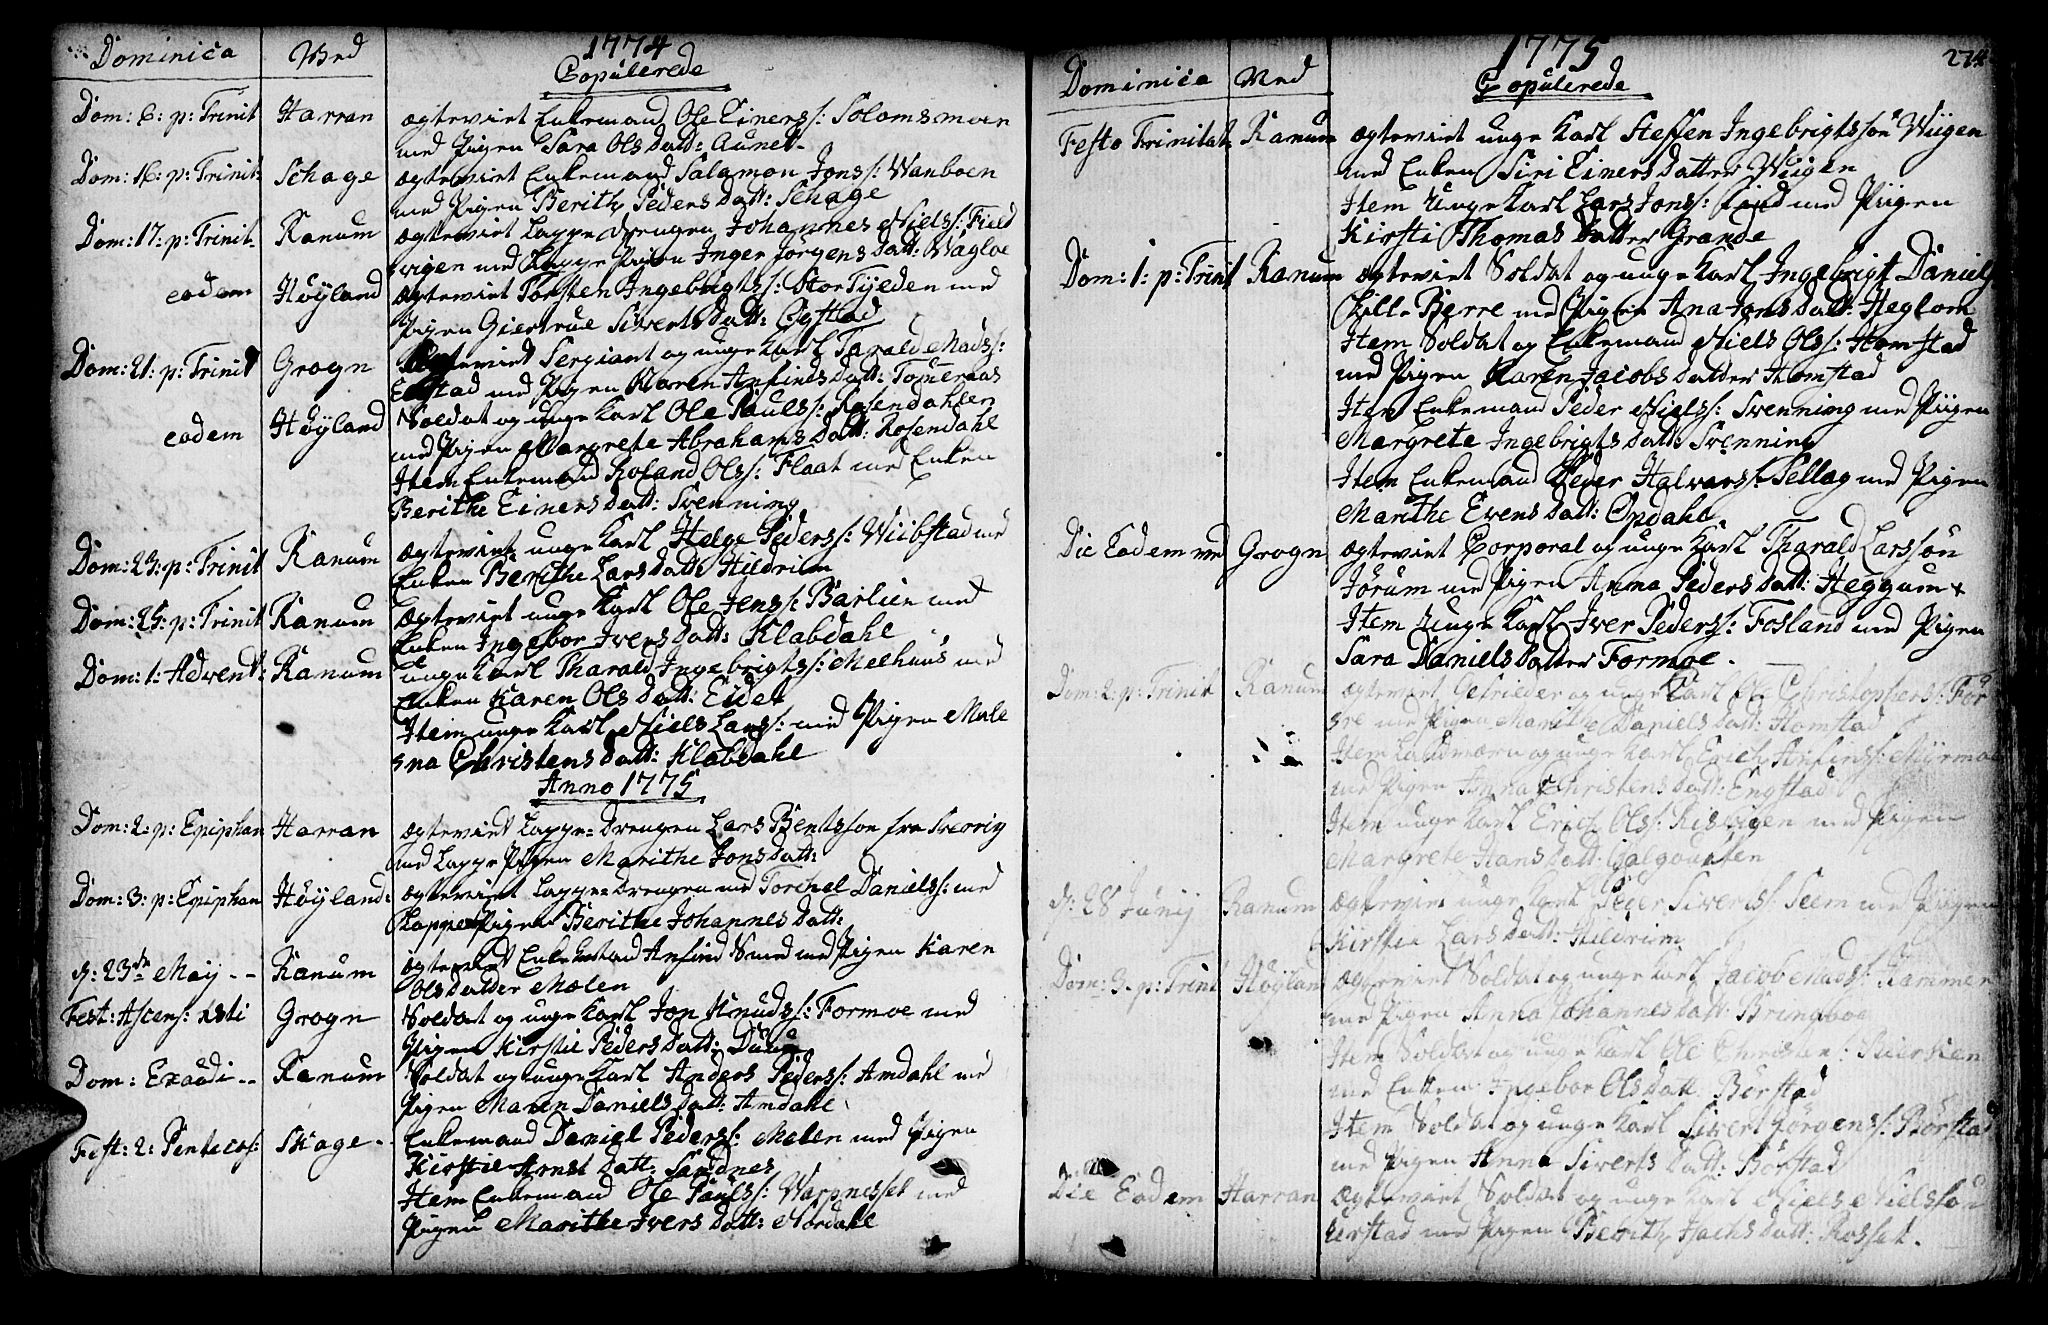 Dominica Ved 1774
Copulerede
Dom: 6: p: Trinit Harran ægteviet Enkemand Ole Einers: Solomsmoen
med Pigen Sara Olsdatt: Aunet
Dom: 16: p: Trinit: Schage ægteviet Enkemand Salamon Jons: Wanboen
med Pigen Berith Pedersdatt: Schage
Dom: 17: p: Trinit Ranum ægteviet Lappe Drengen Johannes Niels: Field
vigen med Lappe Pigen Inger Jørgensdatt: Wågloe
eodem Høyland ægteviet Torsten Ingebrigts: Stor Tjeden med
Pigen Giertrue Siwertsdatt: Øystad
Dom: 21: p: Trinit Grogn Sergiant og unge Karl Tarald Mads:
med Pigen Karen Anfindsdatt:
eodem Høyland Soldat og unge Karl Ole Pauls: Rosendahlen
med Pigen Margrete Abrahamsdatt: Rosendahl
Item Enkemand Roland Ols: Flaat med Enken
Berithe Einersdatt: Svenning
Dom: 23: p: Trinit Ranum ægteviet unge Karl Helge Peders: Wiibstad med
Enken Berithe Larsdatt Hildrim
Dom: 25: p: Trinit Ranum ægteviet unge Karl Ole Jens: Barlien med
Enken Ingebor Iversdatt: Klabdahl
Dom: 1: Adwent: Ranum unge Karl Tharald Ingebrigts: Melhuus med
Enken Karen Olsdatt: Eidet
Item unge Karl Niels Lars: med Pigen Male
sna Christensdatt: Klabdahl
Anno 1775
Dom: 2: p: Epiphan Harran ægteviet Lappe-Drengen Lars Bentsson fra Sverrig
med Lappe Pigen Marithe Jonsdatt:
Dom: 3: p: Epiphan Høyland: ægteviet Lappe-Drengen Torchel Daniels: med
Lappe Pigen Berithe Johannesdatt:
d: 23de May -- Ranum ægteviet Enkemand Anfind Smed med Pigen Karen
Olsdatter Mølen
Fest: Ascens: xsti Grogn Soldat og unge Karl Jon Knuds: Formoe med
Pigen Kirstie Pedersdatt: Duun
Dom: Exaudi -- Ranum Soldat og unge Karl Anders Peders: Amdahl med
Pigen Maren Danielsdatt: Amdahl
Fest: 2: Pentecos: Skage - Enkemand Daniel Peders: Mølen med Pigen
Kirstie Arnstdatt: Sandnes
Item Enkemand Ole Pauls: Warpnesset med
Pigen Marithe Iversdatt: Nordahl
Dominica Ved 1775 274
Copulerede
Festo Trinitat: Ranum ægteviet unge Karl Steffen Ingebrigtssøn Wiigen
med Enken Siri Einersdatter Wiigen
Item Unge Karl Lars Jons: Lind med Pigen
Kirsti Thomasdatter Grande
Dom: 1: p: Trinit Ranum ægteviet Soldat og unge Karl Ingebrigt Daniels
Lille Berre med Pigen Ana Jonsdatt: Heglom
Item Soldat og Enkemand Niels Ols: Homstad
med Pigen Karen Jacobsdatter Homstad
Item Enkemand Peder Niels: Svenning med Pigen
Margrete Ingebrigtsdatt: Svenning
Item Enkemand Peder Halvors: Sellæg med Pigen
Marithe Evensdatt: Opdahl
Die Eodem Grogn ægteviet Corporal og unge Karl Tharald Larssøn
Jørum med Pigen Anna Pedersdatt: Heggum
Item Unge Karl Iver Peders: Fosland med Pigen
Sara Danielsdatter Formoe.
Dom: 2: p: Trinit Ranum ægteviet Gefrieder og unge Karl Ole Christophers: For
sre med Pigen Marithe Danielsdatt: Homstad
Item Landværn og unge Karl Erich Anfins: Myrmoe
med Pigen Anna Christensdatt: Engstad
Item unge Karl Erich Ols: Risvigen med Pigen
Margrete Hansdatt:
d: 28 Junij Ranum ægteviet unge Karl Peder Siwerts: Seem med Pigen
Kirstie Larsdatt: Hildrim
Dom: 3: p: Trinit Høyland ægteviet Soldat og unge Karl Jacob Mads: Hammer
med Pigen Anna Johannesdatt: Bringboe
Item Soldat og unge Karl Ole Christens: Kierken
med Enken Ingebor Olsdatt. Børstad
Item Soldat og unge Karl Siwert Jørgens: Børstad
med Pigen Anna Siwertsdatt: Børstad
Die Eodem Harran ægteviet Soldat og unge Karl Niels Nielssøn
med Pigen Berith datt: Rosset.